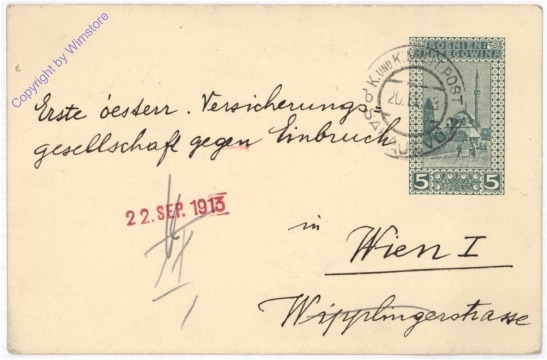 Copyright by Wimstore
BOSNIEN
HERCEGOWINA
K. UND K. MILIT. POST
SARAJEVO
Erste oesterr. Versicherungs-
gesellschaft gegen Einbruch
5 5
22. SEP. 1913
in
Wien I
Wipplingerstrasse